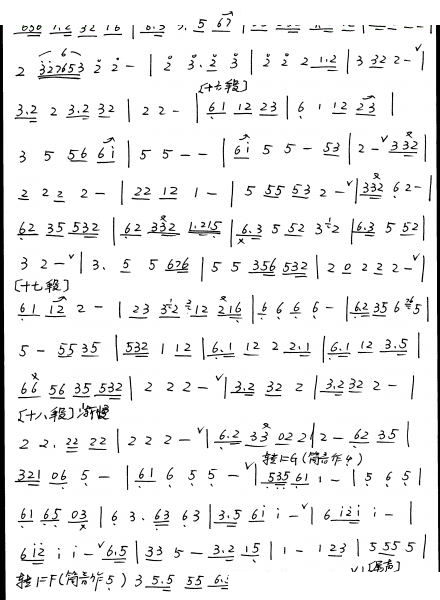 2 327653 2 2 - | 2 3. 2 3 | 2 2 2 1.2 | 3 32 2 - |
[十七段]
3.2 2 3.2 32 | 2 2 - | 61 12 23 | 6 1 12 23 |
3 5 56 6i | 5 5 - - | 6i 5 5 - 53 | 2 - 332 |
2 22 2 - | 22 12 1 - | 5 55 53 2 - | 332 6 2 - |
62 35 532 | 62 332 1.215 | 6.3 5 52 3 2 | 6.3 5 52 |
3 2 - | 3. 5 5 676 | 5 5 356 532 | 2 0 2 2 2 - |
[十七段]
61 12 2 - | 23 32 12 216 | 6 6 6 6 - | 6.2 35 6 5 |
5 - 55 35 | 532 1 12 | 6.1 12 2 2.1 | 6.1 12 3.5 |
66 56 35 532 | 2 2 2 - | 3.2 32 2 | 3.2 32 2 - |
[十八段]
2 2. 22 22 | 2 2 2 - | 6.2 33 02 2 | 2 - 62 35 |
转1=G(筒音作
321 06 5 - | 61 6 5 5 - | 535 61 1 - | 5 6 5 |
61 65 03 | 6 3. 63 63 | 3.5 6i i - | 6 i2i i - |
6i2 i i - 6.5 | 33 5 - 3.2 15 | 1 - 1 23 | 5 55 5 |
[尾声]
转1=F(筒音作5) 3 5.5 55